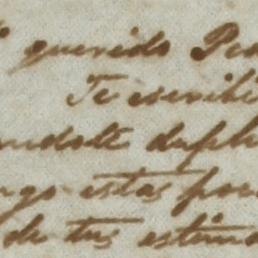 querido Ped
Te escribi
ndote dupli
ngo estas por
de tus estim